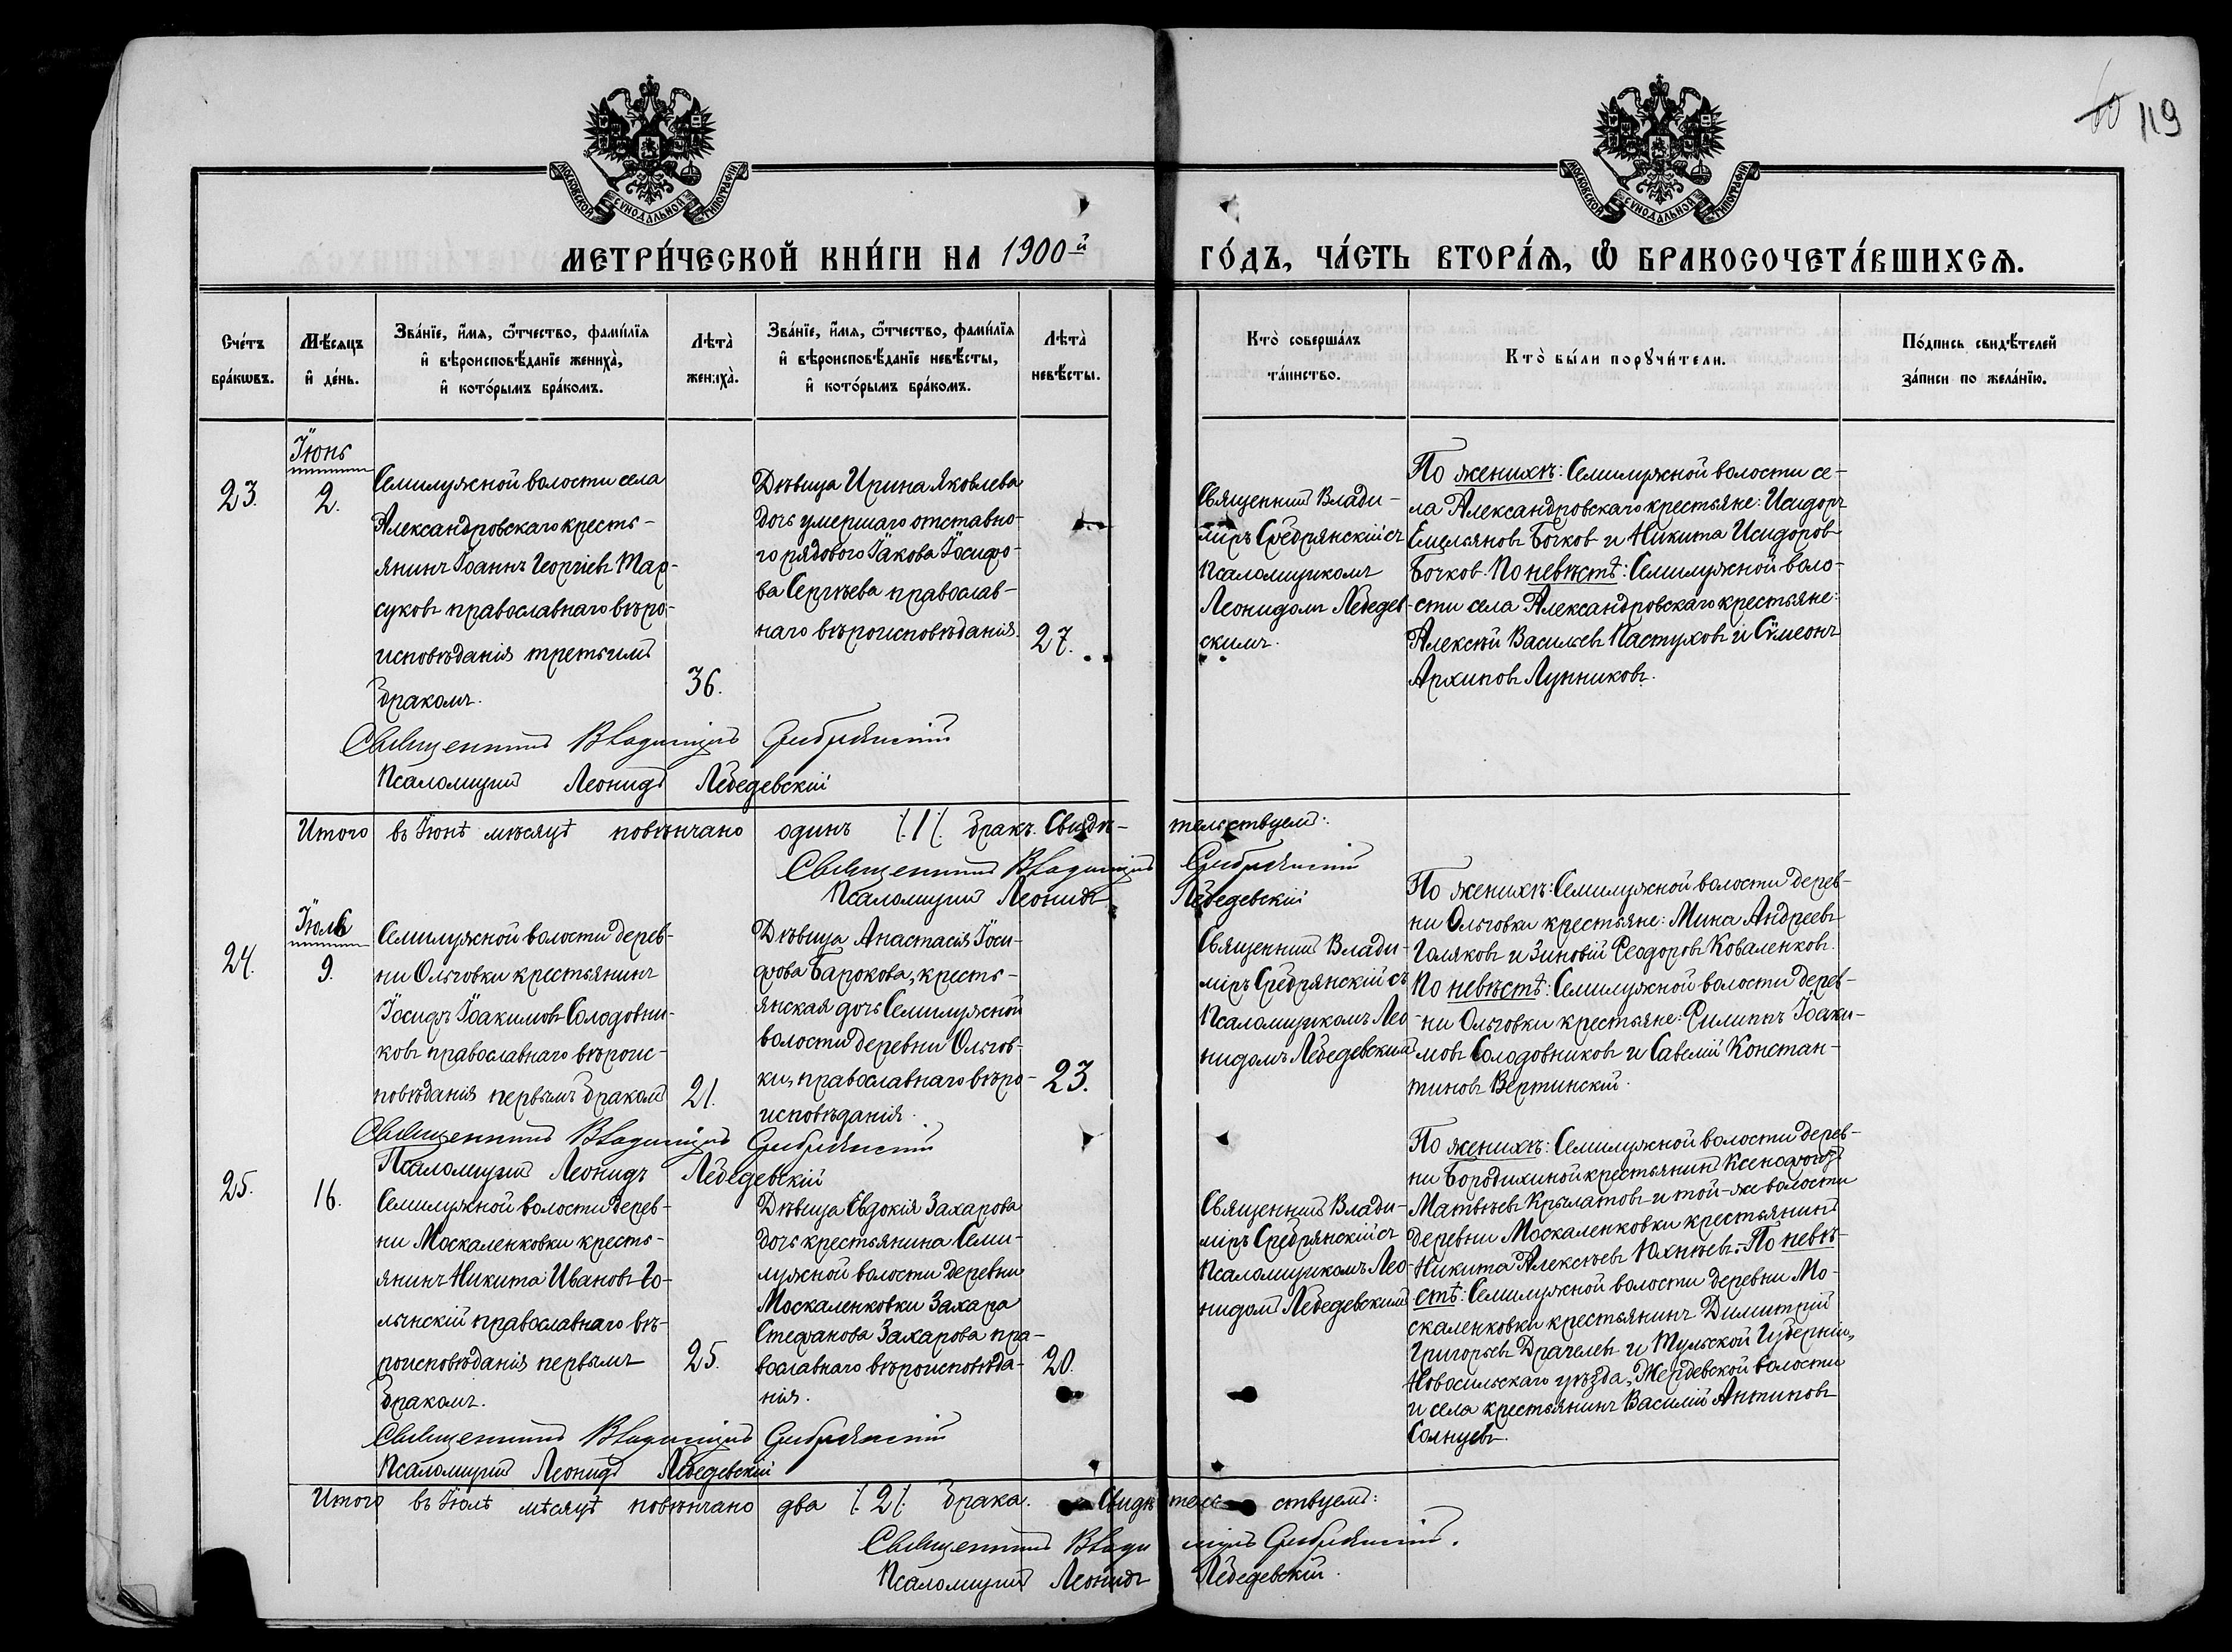 60 119
МОСКОВСКОЙ СѴНОДАЛЬНОЙ ТИПОГРАФІИ
МОСКОВСКОЙ СѴНОДАЛЬНОЙ ТИПОГРАФІИ
МЕТРИ́ЧЕСКОЙ КНИ́ГИ НА 1900-й ГО́ДЪ, ЧА́СТЬ ВТОРА́Ѧ, Ѿ БРАКОСОЧЕТА́ВШИХСѦ.
Сче́тъ
бра́кѡвъ.
Мѣ́сяцъ
и҆ де́нь.
Зва́нїе, и҆́мя, ѻ҆́тчество, фами́лїя
и҆ вѣроисповѣ́данїе жениха̀,
и҆ кото́рымъ бра́комъ.
Лѣта̀
жениха̀.
Зва́нїе, и҆́мя, ѻ҆́тчество, фами́лїя
и҆ вѣроисповѣ́данїе невѣ́сты,
и҆ кото́рымъ бра́комъ.
Лѣта̀
невѣ́сты.
Кто̀ соверша́лъ
та́инство.
Кто̀ бы́ли порꙋчи́тели.
По́дпись свидѣ́телей
за́писи по жела́нїю.
23.
Іюнь
2.
Семилужной волости села
Александровскаго кресть-
янинъ Іоаннъ Георгіевъ Мар-
суковъ православнаго вѣро-
исповѣданія третьимъ
бракомъ.
36.
Дѣвица Ирина Яковлева
дочь умершаго отставно-
го рядового Іакова Іосифо-
ва Сергѣева православ-
наго вѣроисповѣданія.
27.
Священникъ Влади-
міръ Сребрянскій съ
Псаломщикомъ
Леонидомъ Лебедев-
скимъ.
По женихѣ: Семилужной волости се-
ла Александровскаго крестьяне: Исидоръ
Емельяновъ Бочковъ и Никита Исидоровъ
Бочковъ. По невѣстѣ: Семилужной воло-
сти села Александровскаго крестьяне:
Алексѣй Васильевъ Пастуховъ и Сѵмеонъ
Архиповъ Лунниковъ.
Священникъ Владиміръ Сребрянскій
Псаломщикъ Леонидъ Лебедевскій
Итого въ Іюнѣ мѣсяцѣ повѣнчано одинъ /.1/. бракъ. Свидѣтельствуемъ:
Священникъ Владиміръ Сребрянскій
Псаломщикъ Леонидъ Лебедевскій
24.
Іюль
9.
Семилужной волости дерев-
ни Ольговки крестьянинъ
Іосифъ Іоакимовъ Солодовни-
ковъ православнаго вѣроис-
повѣданія первымъ бракомъ
21.
Дѣвица Анастасія Іоси-
фова Барокова, кресть-
янская дочь Семилужной
волости деревни Ольгов-
ки, православнаго вѣро-
исповѣданія.
23.
Священникъ Влади-
міръ Сребрянскій съ
Псаломщикомъ Лео-
нидомъ Лебедевскимъ
По женихѣ: Семилужной волости дерев-
ни Ольговки крестьяне: Мина Андреевъ
Голяковъ и Зиновій Ѳеодоровъ Коваленковъ.
По невѣстѣ: Семилужной волости дерев-
ни Ольговки крестьяне: Филиппъ Іоаки-
мовъ Солодовниковъ и Савелій Констан-
тиновъ Вертинскій.
Священникъ Владиміръ Сребрянскій
Псаломщикъ Леонидъ Лебедевскій
25.
16.
Семилужной волости дерев-
ни Москаленковки кресть-
янинъ Никита Ивановъ Го-
лынскій православнаго вѣ-
роисповѣданія первымъ
бракомъ.
25.
Дѣвица Евдокія Захарова
дочь крестьянина Семи-
лужной волости деревни
Москаленковки Захара
Стефанова Захарова пра-
вославнаго вѣроисповѣда-
нія.
20.
Священникъ Влади-
міръ Сребрянскій съ
Псаломщикомъ Лео-
нидомъ Лебедевскимъ
По женихѣ: Семилужной волости дерев-
ни Бородихиной крестьянинъ Ксенофонтъ
Матвѣевъ Крылатовъ и той-же волости
деревни Москаленковки крестьянинъ
Никита Алексѣевъ Юхнѣевъ. По невѣ-
стѣ: Семилужной волости деревни Мо-
скаленковки крестьянинъ Димитрій
Григорьевъ Драчелевъ и Тульской Губерніи,
Новосильскаго уѣзда, Жердевской волости
и села крестьянинъ Василій Антиповъ
Солнцевъ.
Священникъ Владиміръ Сребрянскій
Псаломщикъ Леонидъ Лебедевскій
Итого въ Іюлѣ мѣсяцѣ повѣнчано два /.2/. брака. Свидѣтельствуемъ:
Священникъ Владиміръ Сребрянскій.
Псаломщикъ Леонидъ Лебедевскій.